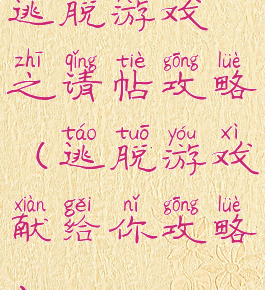 逃脱游戏
zhī qǐng tiè gōng lüè
之请帖攻略
táo tuō yóu xì
（逃脱游戏
xiàn gěi nǐ gōng lüè
献给你攻略